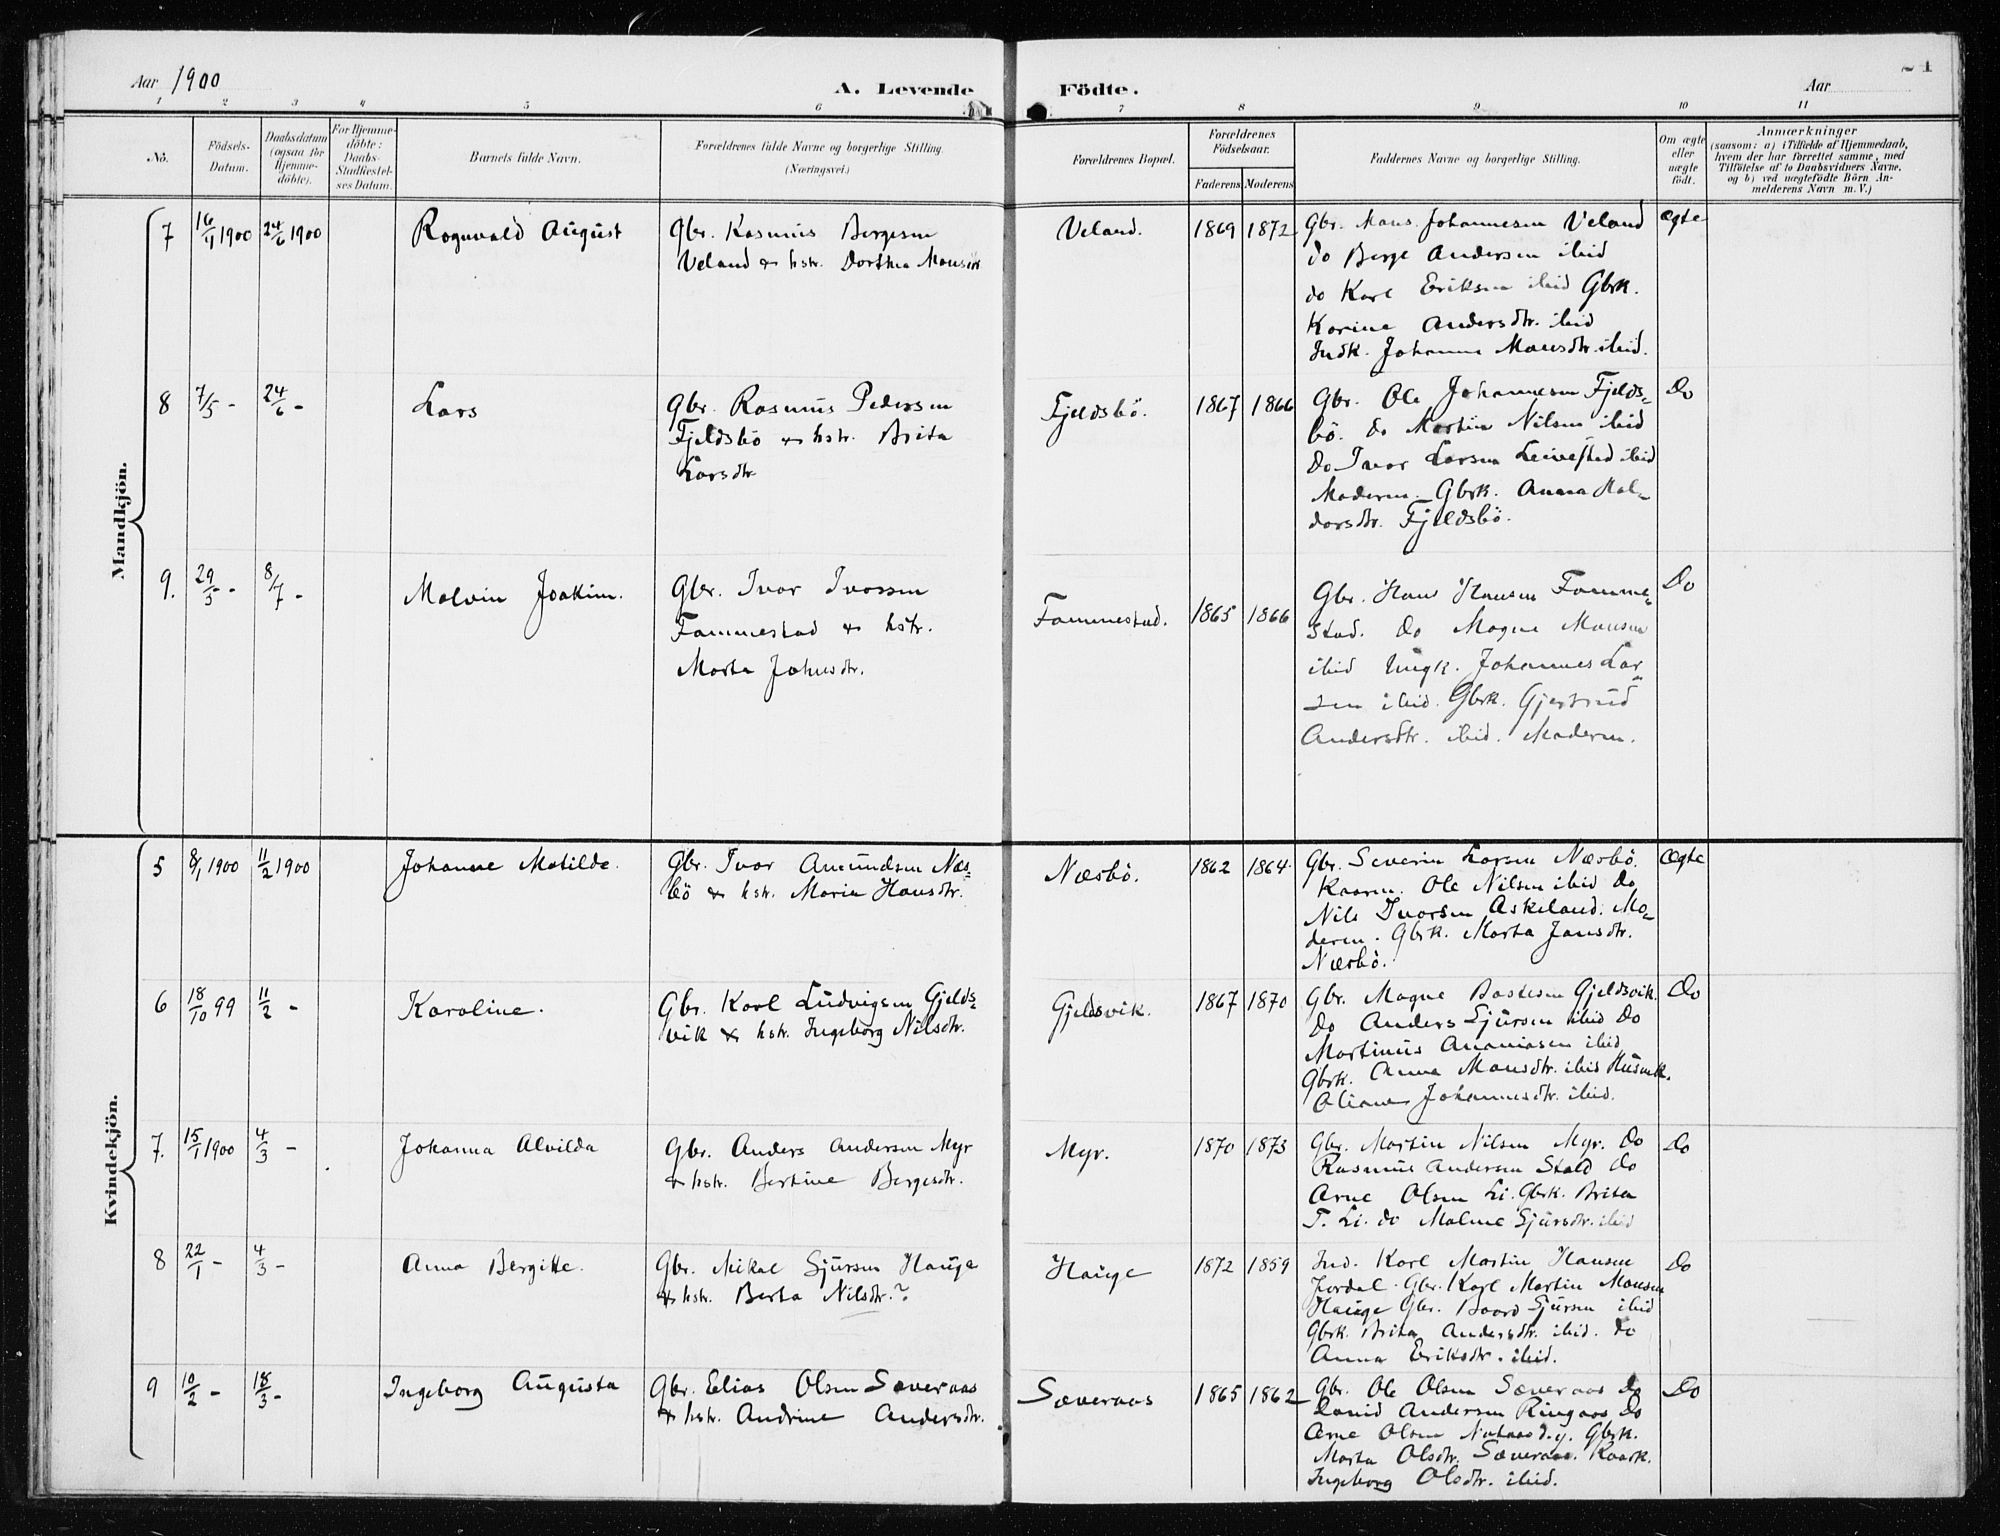 Aar 1900
A. Levende Födte.
Aar
21
1 2 3 4 5 6 7 8 9 10 11
No.
Födsels-
Datum.
Daabsdatum
(ogsaa for
Hjemme-
döbte).
For Hjemme-
döbte:
Daabs-
Stadfestel-
ses Datum.
Barnets fulde Navn.
Forældrenes fulde Navne og borgerlige Stilling.
(Næringsvei.)
Forældrenes Bopæl.
Forældrenes
Födselsaar.
Faderens Moderens
Faddernes Navne og borgerlige Stilling.
Om ægte
eller
uægte
födt.
Anmærkninger
(saasom: a) i Tilfælde af Hjemmedaab,
hvem der har forrettet samme, med
Tilföielse af to Daabsvidners Navne,
og b) ved uægtefödte Börn An-
melderens Navn m. V.)
Mandkjön.
7 16/4 1900 24/6 1900
Rognvald August
Gbr. Rasmus Bergesen
Veland & hstr. Dorthea Monsdtr
Veland.
1869 1872
Gbr. Mons Johannesen Veland
do Berge Andersen ibid
do Karl Eriksen ibid Gbrk.
Korine Andersdtr. ibid
Indk. Johanne Monsdtr. ibid.
ægte
8 7/5 - 24/6 -
Lars
Gbr. Rasmus Pedersen
Fjeldsbö & hstr. Brita
Larsdtr
Fjeldsbö.
1867 1866
Gbr. Ole Johannesen Fjelds-
bö. do Martin Nilsen ibid
Do Ivar Larsen Leivestad ibid
Moderen. Gbrk. Anna Hal-
dorsdtr. Fjeldsbö.
Do
9. 29/5 - 8/7 -
Malvin Joakim.
Gbr. Ivar Ivarsen
Fammestad & hstr.
Marta Johnsdtr.
Fammestad.
1865 1866
Gbr. Hans Hansen Famme-
stad. Do Mogne Monsen
ibid Ungk. Johannes Lar-
sen ibid. Gbrk. Gjertrud
Andersdtr. ibid. Moderen.
Do
Kvindekjön.
5 8/1 1900 11/2 1900
Johanne Matilde.
Gbr. Ivar Amundsen Næs-
bö & hstr. Marie Hansdtr.
Næsbö.
1862 1864.
Gbr. Severin Larsen Næsbö.
Kaarm. Ole Nilsen ibid Do
Nils Ivarsen Askeland. Mo-
deren. Gbrk. Marta Jansdtr.
Næsbö.
Ægte
6 18/10 99 11/2 -
Karoline.
Gbr. Karl Ludvigsen Gjelds-
vik & hstr. Ingeborg Nilsdtr.
Gjeldsvik.
1867 1870
Gbr. Magne Bastesen Gjeldsvik.
Do Anders Sjursen ibid Do
Martinus Ananiasen ibid
Gbrk. Anna Monsdtr. ibid Husmk.
Oliane Johannesdtr. ibid.
Do
7. 15/1 1900 4/3 -
Johanna Alvilda
Gbr. Anders Andersen Myr
& hstr. Bertine Bergesdtr.
Myr.
1870 1873
Gbr. Martin Nilsen Myr. Do
Rasmus Andersen Stald Do
Arne Olsen Li. Gbrk. Brita
T. Li. do Malene Sjursdtr. ibid
Do
8 22/1 - 4/3 -
Anna Bergitte.
Gbr. Mikal Sjursen Hauge
& hstr. Berta Nilsdtr.?
Hauge
1872 1859
Ind. Karl Martin Hansen
Jordal. Gbr. Karl Martin Monsen
Hauge Gbr. Baard Sjursen ibid
Gbrk. Brita Andersdtr. ibid. do
Anna Eriksdtr. ibid.
Do
9 10/2 - 18/3 -
Ingeborg Augusta
Gbr. Elias Olsen Sæveraas
& hstr. Andrine Andersdtr.
Sæveraas
1865 1862
Gbr. Ole Olsen Sæveraas Do
David Andersen Ringaas Do
Arne Olsen Gbrk.
Marta Olsdtr. Sæveraas. Kaark.
Ingeborg Olsdtr. ibid.
Do